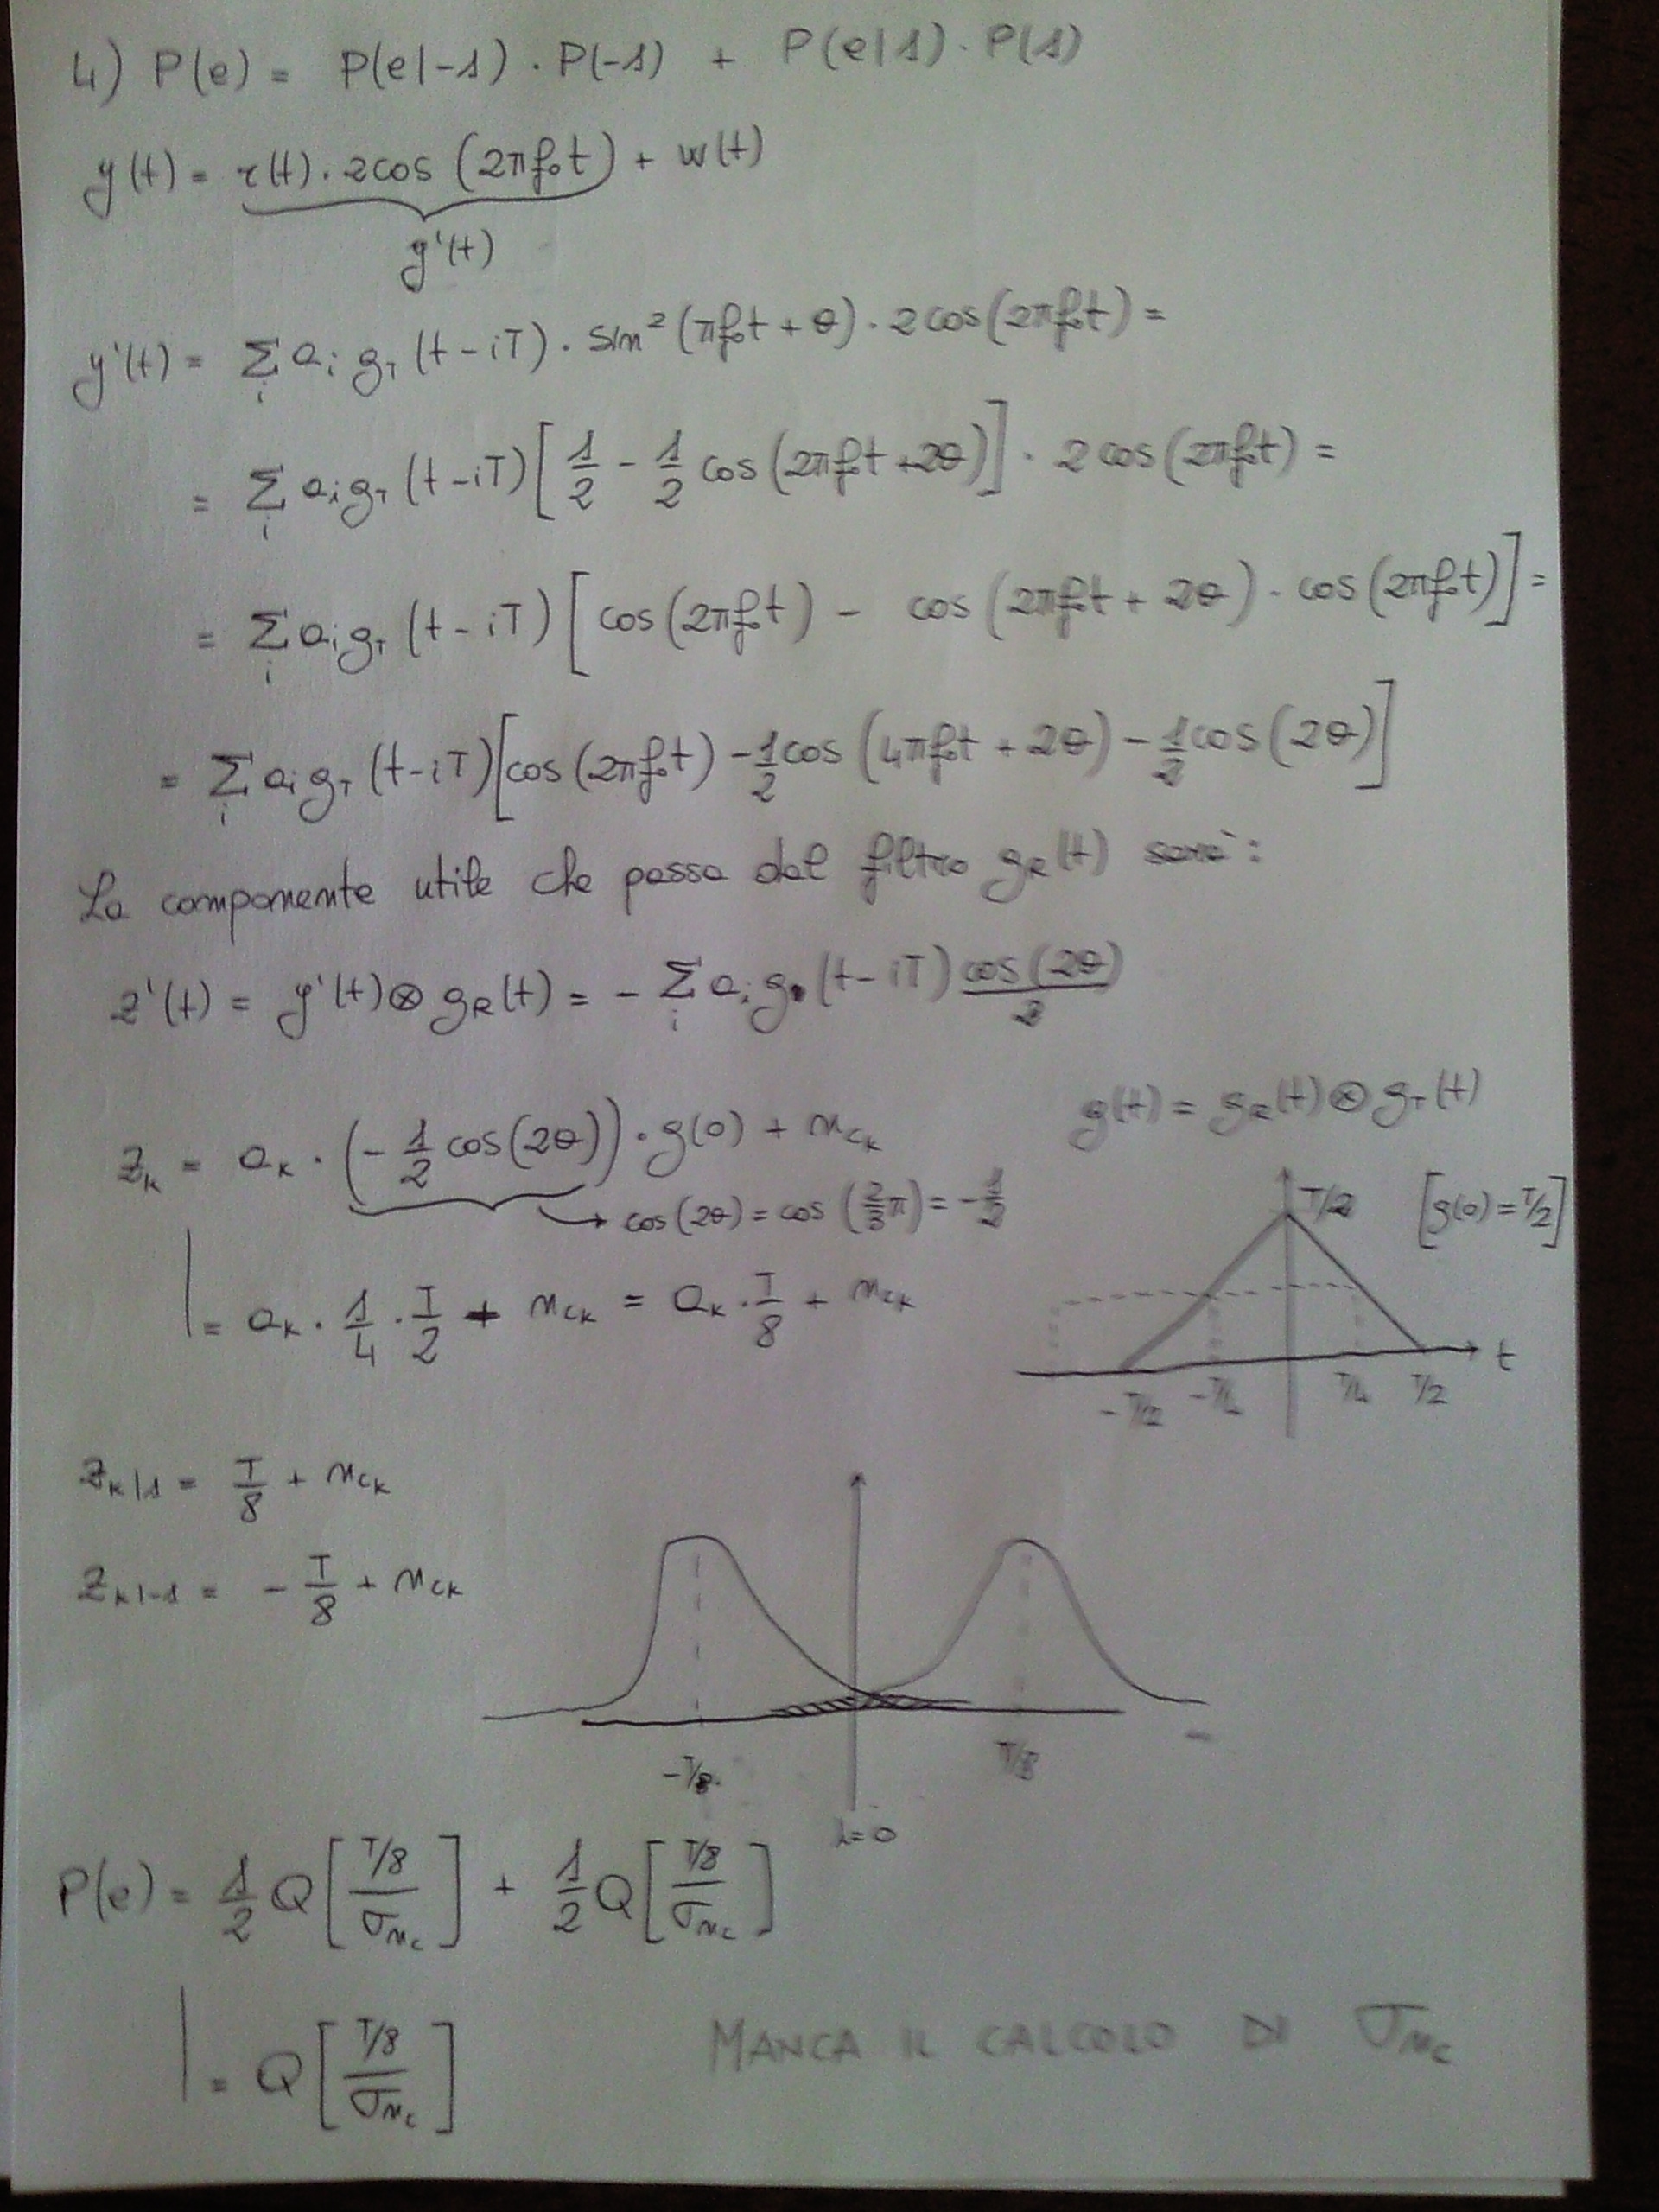 4) P(e) = P(e|-1) · P(-1) + P(e|1) · P(1)
y(t) = r(t) · 2cos (2πf₀t) + w(t)
y'(t)
y'(t) = Σᵢ aᵢ g_T (t-iT) · sin² (πf₀t + θ) · 2cos(2πf₀t) =
= Σᵢ aᵢ g_T (t-iT) [1/2 - 1/2 cos (2πf₀t + 2θ)] · 2cos(2πf₀t) =
= Σᵢ aᵢ g_T (t-iT) [cos(2πf₀t) - cos (2πf₀t + 2θ) · cos(2πf₀t)] =
= Σᵢ aᵢ g_T (t-iT) [cos(2πf₀t) - 1/2 cos (4πf₀t + 2θ) - 1/2 cos(2θ)]
La componente utile che passa dal filtro g_R(t) sarà:
z'(t) = y'(t) ⊗ g_R(t) = - Σᵢ aᵢ g (t-iT) cos(2θ)/2
g(t) = g_R(t) ⊗ g_T(t)
z_k = a_k · (-1/2 cos(2θ)) · g(0) + n_ck
→ cos(2θ) = cos (2/3 π) = -1/2
T/2 [g(0) = T/2]
= a_k · 1/4 · T/2 + n_ck = a_k · T/8 + n_ck
t
-T/2 -T/4 T/4 T/2
z_k|1 = T/8 + n_ck
z_k|-1 = - T/8 + n_ck
-T/8 T/8
λ=0
P(e) = 1/2 Q [T/8 / σ_nc] + 1/2 Q [T/8 / σ_nc]
= Q [T/8 / σ_nc]
MANCA IL CALCOLO DI σ_nc